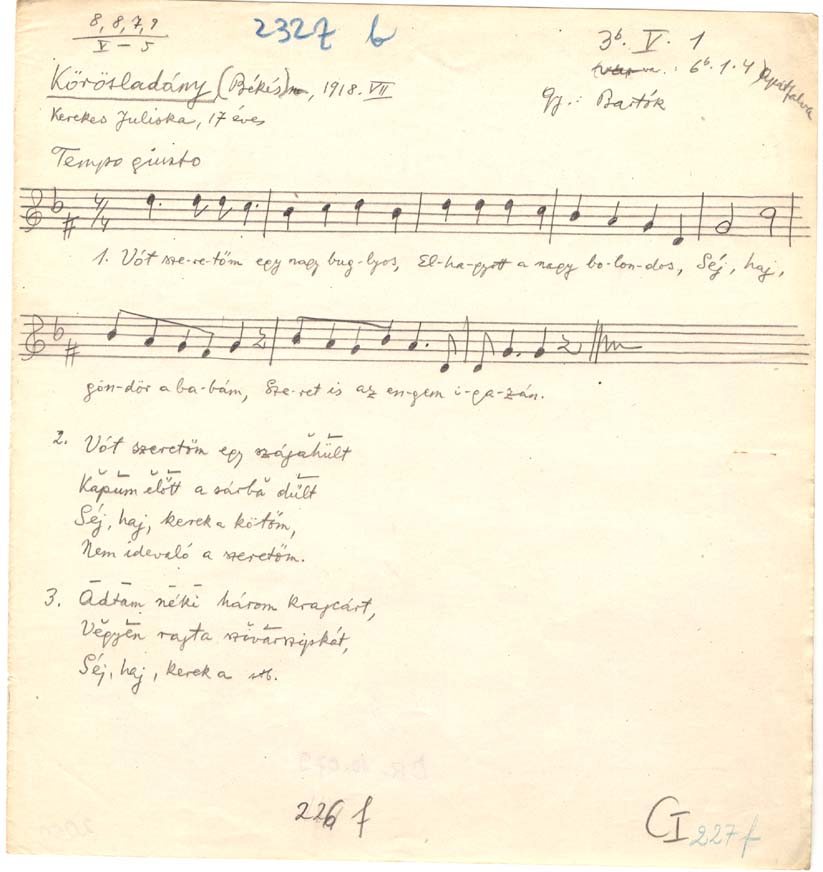 8, 8, 7, 9
V – 5
2327 b
3b. V. 1
va.: 6b.1.4)
Körösladány (Békés), 1918. VII
Gy.: Bartók
Kerekes Juliska, 17 éves
Tempo giusto
4/4
1. Vót sze-re-tőm egy nagy bug-lyos, El-ha-gyott a nagy bo-lon-dos, Séj, haj,
gön-dör a ba-bám, Sze-ret is az en-gem i-ga-zán.
2. Vót szeretőm egy szájahűlt
Kapum előtt a sárba dűlt
Séj, haj, kerek a kötőm,
Nem idevaló a szeretőm.
3. Adtam néki három krajcárt,
Végyen rajta szivarszipkát,
Séj, haj, kerek a stb.
226 f
CI 227 f